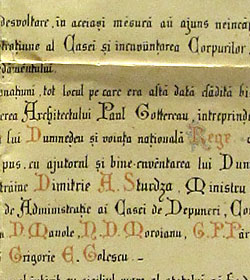 desvoltare, în aceiași mesură au ajuns neîncăp
trațiune al Casei și încuviințarea Corpurilor,
damêntului.
națiuni, tot locul pe care era altă dată clădită bi
erea Architectului Paul Gottereau, întreprinde
lui Dumnedeu și voința națională Rege
pus, cu ajutorul și bine-cuvêntarea lui Dum
trăine Dimitrie A. Sturdza, Ministru
de Administrație ai Casei de Depuneri, Con
D. Manole, N. D. Moroianu, G. P. Păr
Grigorie E. Golescu.